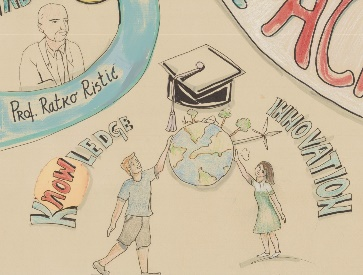 Prof. Ratko Ristić
AC
KNOWLEDGE
INNOVATION